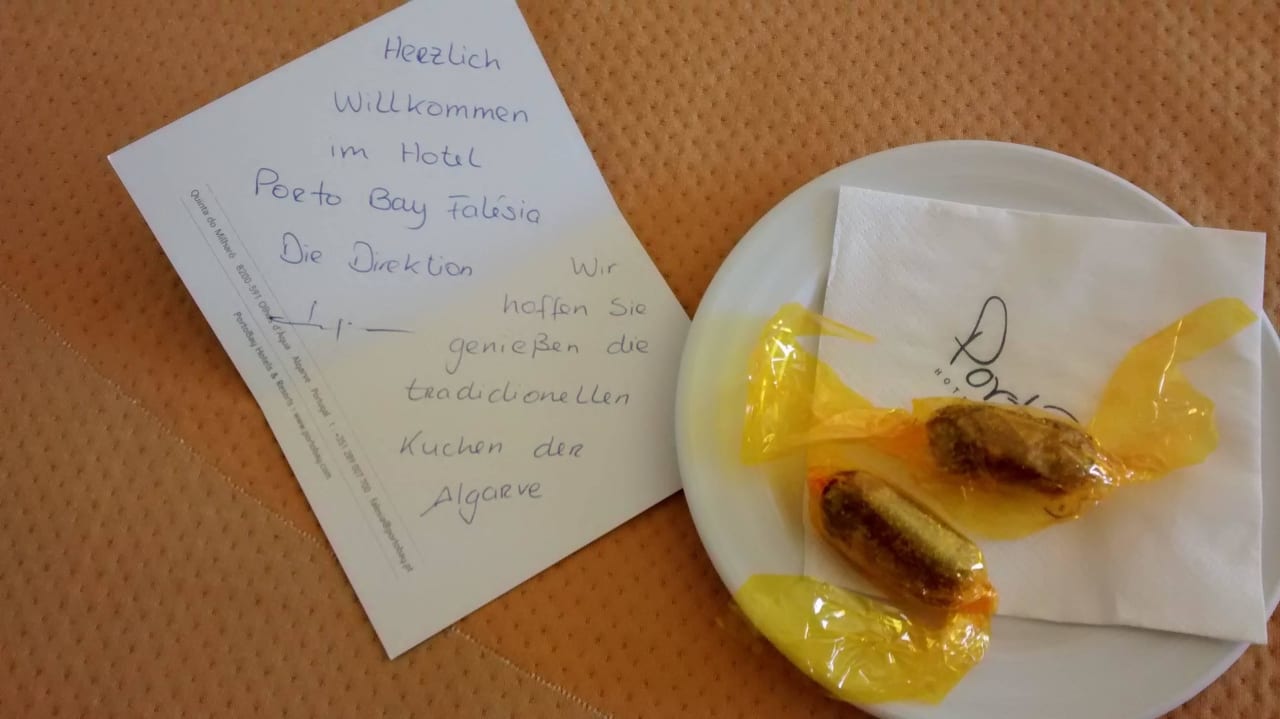 Herzlich
Willkommen
im Hotel
Porto Bay Falésia
Die Direktion
Wir
hoffen Sie
genießen die
tradicionellen
Kuchen der
Algarve
Quinta do Milharó 8200-591 Olhos d'Água Algarve - Portugal t : +351 289 007 700 falesia@portobay.pt
PortoBay Hotels & Resorts : www.portobay.com
Porto